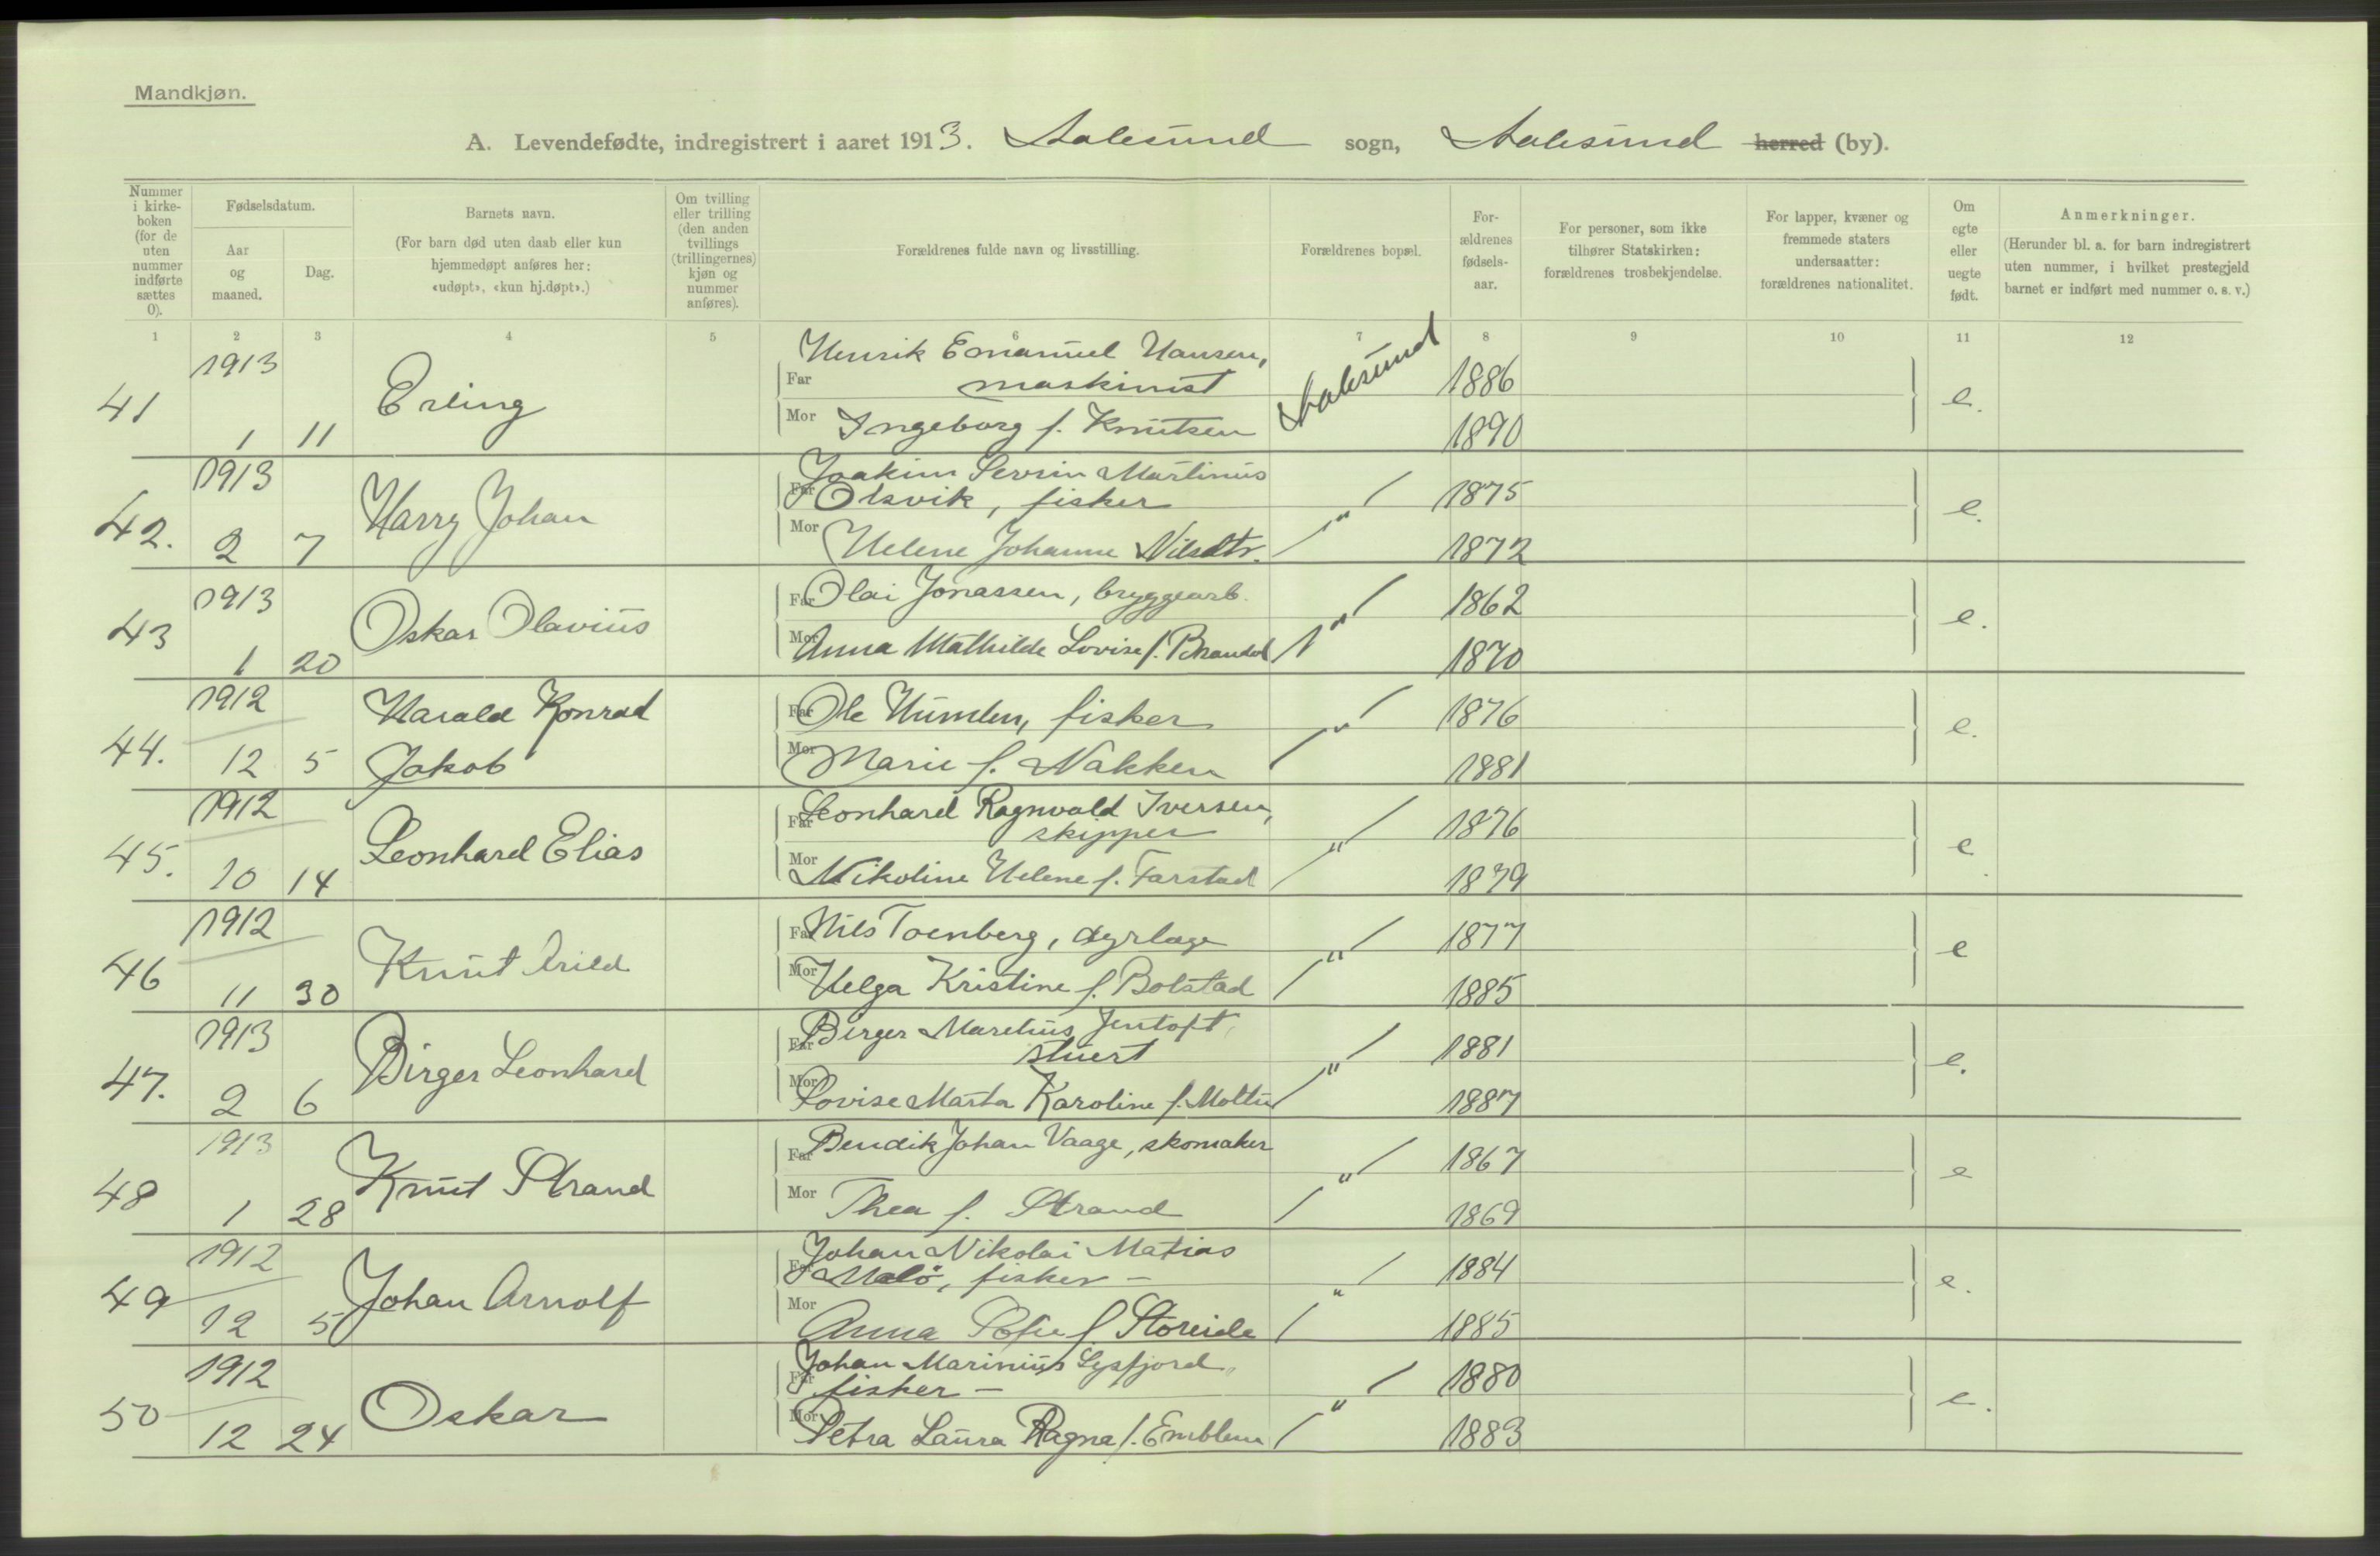 Mandkjøn.
A. Levendefødte, indregistrert i aaret 1913. Aalesund sogn, Aalesund herred (by).
Nummer i kirke-boken (for de uten nummer indførte sættes 0).
Fødselsdatum.
Aar og maaned.
Dag.
Barnets navn.
(For barn død uten daab eller kun hjemmedøpt anføres her: «udøpt», «kun hj.døpt».)
Om tvilling eller trilling (den anden tvillings (trillingernes) kjøn og nummer anføres).
Forældrenes fulde navn og livsstilling.
Forældrenes bopæl.
For-ældrenes fødsels-aar.
For personer, som ikke tilhører Statskirken: forældrenes trosbekjendelse.
For lapper, kvæner og fremmede staters undersaatter: forældrenes nationalitet.
Om egte eller uegte født.
Anmerkninger.
(Herunder bl. a. for barn indregistrert uten nummer, i hvilket prestegjeld barnet er indført med nummer o. s. v.)
1 2 3 4 5 6 7 8 9 10 11 12
41 1913 1 11 Erling
Far Henrik Emanuel Hansen, maskinist Aalesund 1886 e.
Mor Ingeborg f. Knutsen 1890
42. 1913 2 7 Harry Johan
Far Joakim Sevrin Martinus Olsvik, fisker " 1875 e.
Mor Helene Johanne Nilsdtr. 1872
43 1913 1 20 Oskar Olavius
Far Olai Jonassen, bryggearb. " 1862 e.
Mor Anna Mathilde Lovise f. Brandal 1870
44. 1912 12 5 Harald Konrad Jakob
Far Ole Humlen, fisker " 1876 e.
Mor Marie f. Nakken 1881
45. 1912 10 14 Leonhard Elias
Far Leonhard Ragnvald Iversen, skipper " 1876 e.
Mor Nikoline Helene f. Farstad 1879
46 1912 11 30 Knut Arild
Far Nils Toenberg, dyrlæge " 1877 e
Mor Helga Kristine f. Bolstad 1885
47. 1913 2 6 Birger Leonhard
Far Birger Maretius Jentoft, stuert " 1881 e.
Mor Lovise Marta Karoline f. Moltu 1887
48 1913 1 28 Knut Strand
Far Bendik Johan Vaage, skomaker " 1867 e
Mor Thea f. Strand 1869
49 1912 12 5 Johan Arnolf
Far Johan Nikolai Matias Malö, fisker – " 1884 e.
Mor Anna Sofie f. Storeide 1885
50 1912 12 24 Oskar
Far Johan Marinius Lysfjord, fisker – " 1880 e.
Mor Petra Laura Ragna f. Emblem 1883